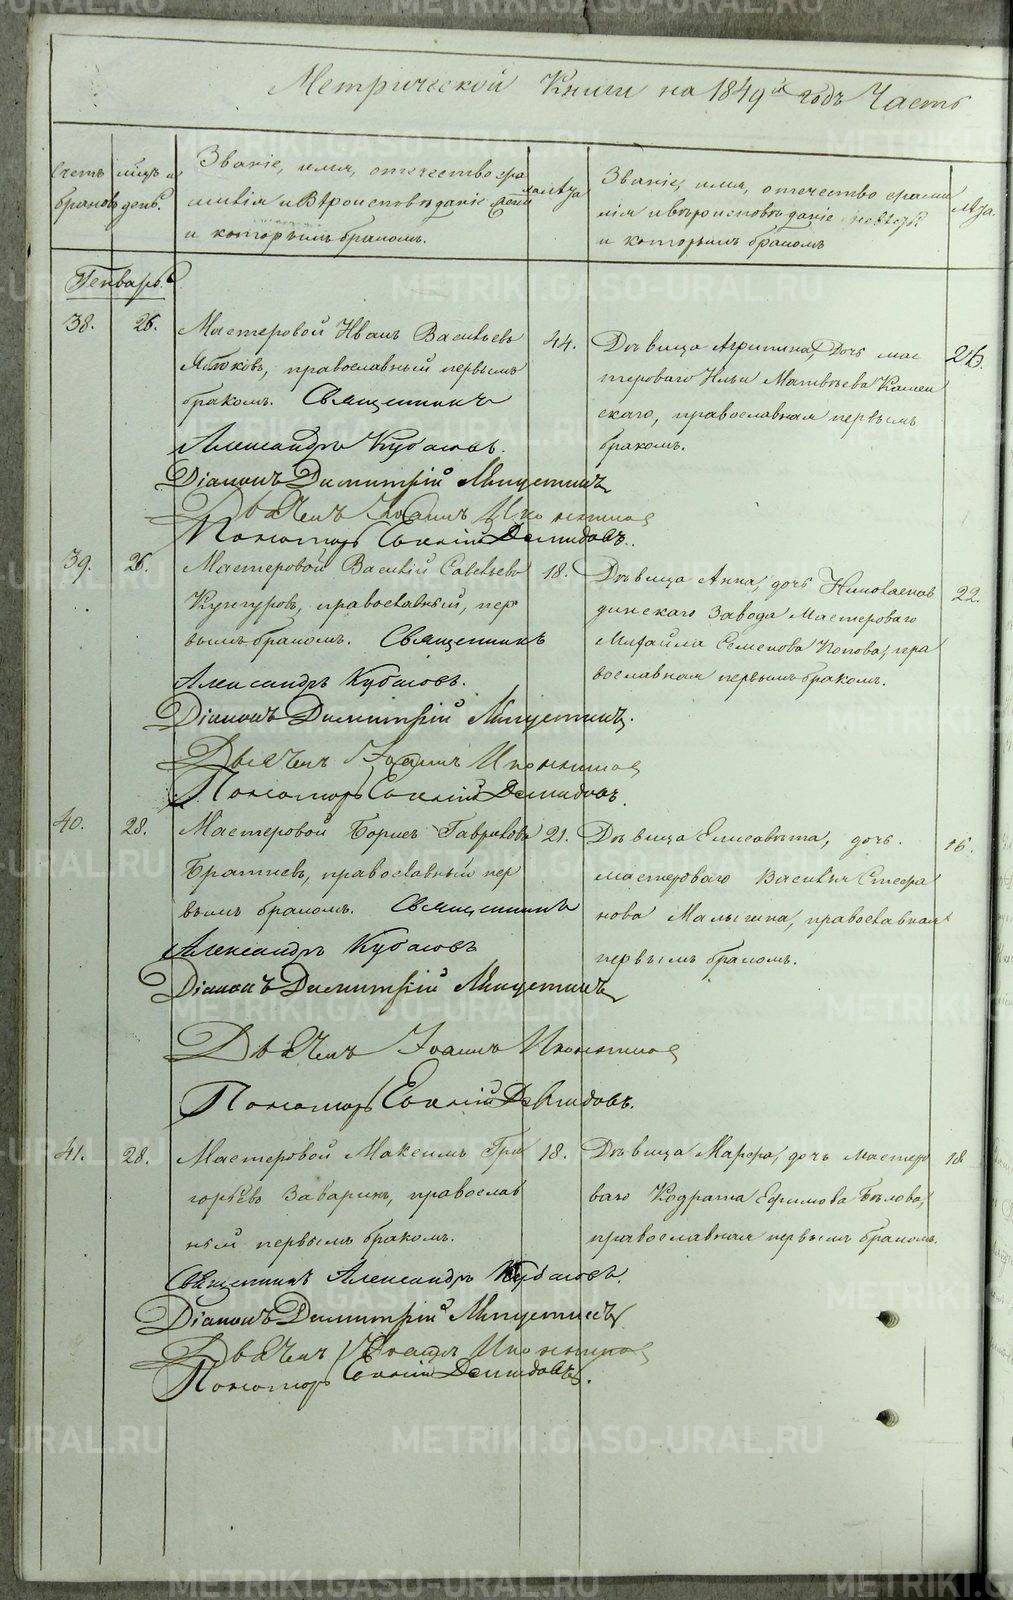 Метрической Книги на 1849й годъ Часть
Счетъ браковъ
мцъ и день.
Званіе, имя, отечество фа
милія и вѣроисповѣданіе жени
ха лѣта
и которымъ бракомъ.
Званіе, имя, отечество фами
лія и вѣроисповѣданіе невѣсты
и которымъ бракомъ
лѣта.
Генварь.
38. 26. Мастеровой Иванъ Васильевъ 44.
православный первымъ
бракомъ. Священникъ
Александръ Кубасовъ.
Діаконъ Димитрій
Дьячекъ Іоаннъ
Пономарь Демидовъ.
Дѣвица Агрипина, Дочь мас 26.
тероваго Ильи Матвѣева Камен
скаго, православная первымъ
бракомъ.
39. 26. Мастеровой Василій Савельевъ 18.
Кунгуровъ, православный, пер
вымъ бракомъ. Священникъ
Александръ Кубасовъ.
Діаконъ Димитрій
Дьячекъ Іоаннъ
Пономарь Демидовъ.
Дѣвица Анна, дочь Николаепав 22.
динскаго Завода Мастероваго
Михайла Семенова Попова, пра
вославная первымъ бракомъ.
40. 28. Мастеровой Борисъ Гавриловъ 21.
православный пер
вымъ бракомъ. Священникъ
Александръ Кубасовъ
Діаконъ Димитрій
Дьячекъ Іоаннъ
Пономарь Демидовъ.
Дѣвица Елисавета, дочь 16.
мастероваго Василья Стефа
нова Малыгина, православная
первымъ бракомъ.
41. 28. Мастеровой Максимъ Гри 18.
горьевъ Заваринъ, православ
ный первымъ бракомъ.
Священникъ Александръ Кубасовъ.
Діаконъ Димитрій
Дьячекъ Іоаннъ
Пономарь Демидовъ.
Дѣвица Марфа, дочь мастеро 18
ваго Кодрата Ефимова Бѣлова,
православная первымъ бракомъ.
METRIKI.GASO-URAL.RU